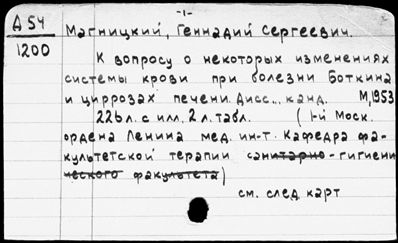 -1-
А 54
1200
Магницкий, Геннадий Сергеевич.
К вопросу о некоторых изменениях
системы крови при болезни Боткина
и циррозах печени. Дисс... канд. М, 1953
226 л. с илл., 2 л. табл. (1-й Моск.
ордена Ленина мед. ин-т. Кафедра фа-
культетской терапии санитарно-гигиени
ческого факультета)
см. след. карт